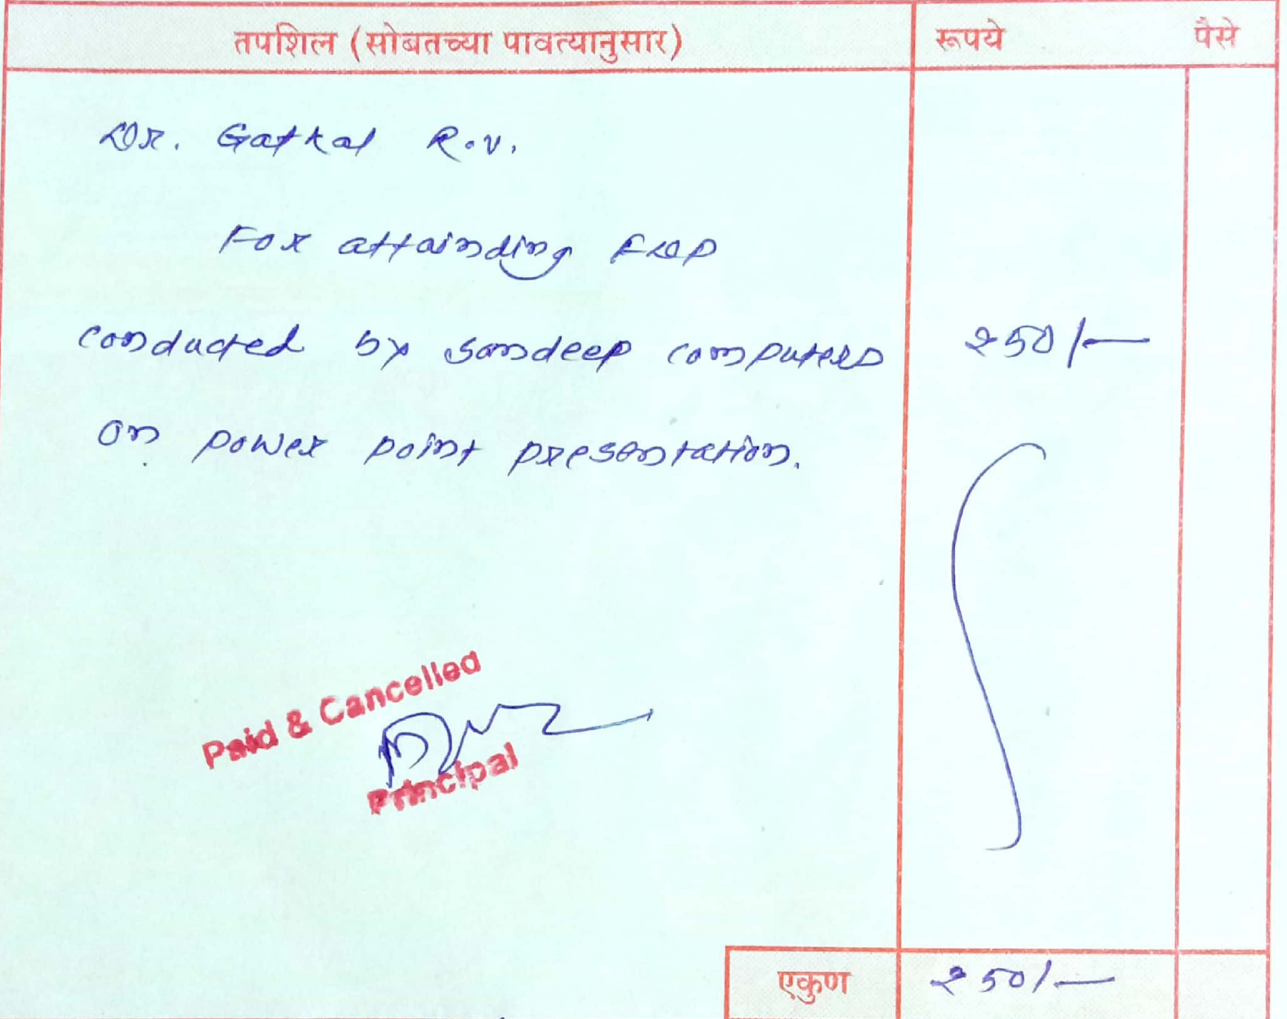 तपशिल (सोबतच्या पावत्यानुसार) रूपये पैसे
Dr. Gatkal R.V.
For attainding FDP
conducted by Sandeep Computers 250/-
on power point presentation.
Paid & Cancelled
Principal
एकुण 250/-